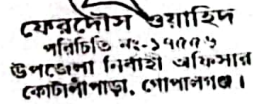 ফেরদৌস ওয়াহিদ
পরিচিতি নং-১৭৭৭৬
উপজেলা নির্বাহী অফিসার
কোটালীপাড়া, গোপালগঞ্জ।